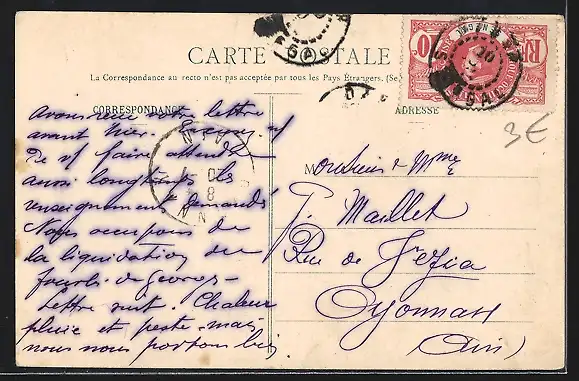 CARTE POSTALE
La Correspondance au recto n'est pas acceptée par tous les Pays Étrangers. (Se
CORRESPONDANCE
ADRESSE
Avons reçu votre lettre
avant hier. Excusez
de faire attendre
aussi longtemps les
renseignements demandés
Nous occupons de
la liquidation des
fonds de Georges -
Lettre suit. Chaleur
pluie et peste - mais
nous nous portons bien
Monsieur & Mme
J. Maillet
Rue de
Oyonnax
(Ain)
3€
10